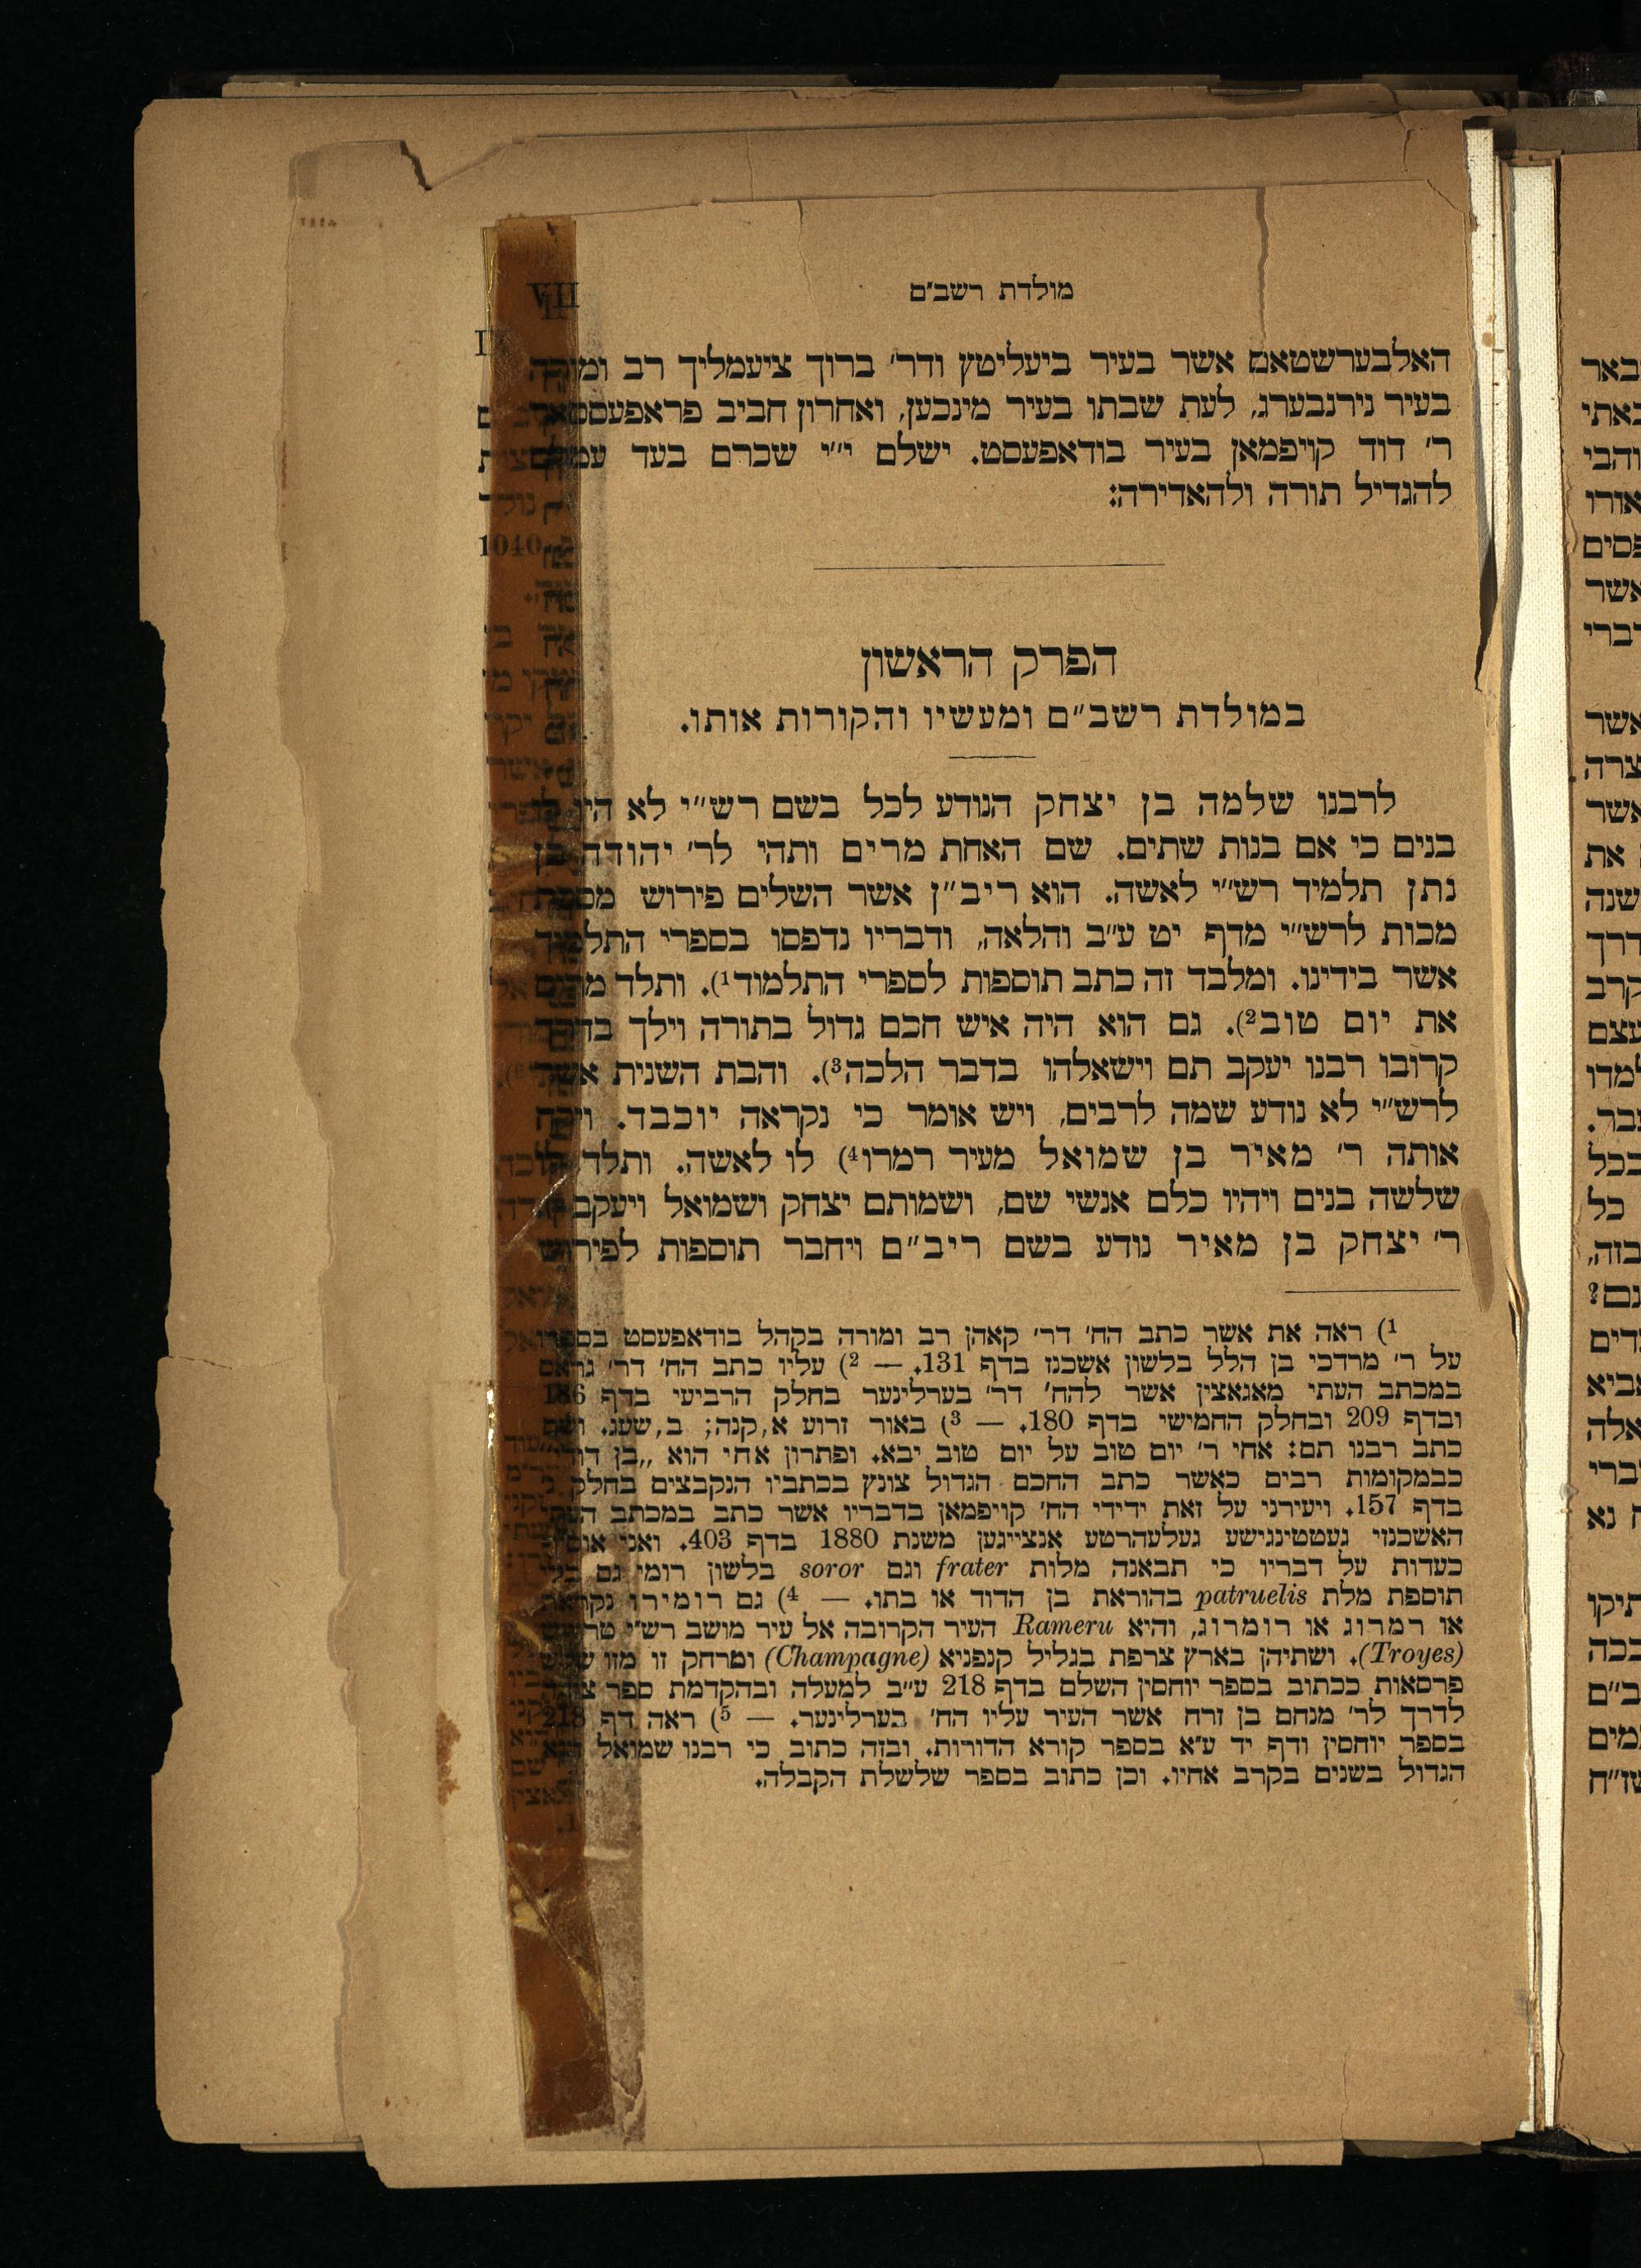 מולדת רשב״ם
VII
האלבערשטאם אשר בעיר ביעליטץ ודר׳ ברוך ציעמליך רב ומורה
בעיר נירנבערג, לעת שבתו בעיר מינכען, ואחרון חביב פראפעססאר
ר׳ דוד קויפמאן בעיר בודאפעסט. ישלם י״י שכרם בעד עמלם
להגדיל תורה ולהאדירה:
הפרק הראשון
במולדת רשב״ם ומעשיו והקורות אותו.
לרבנו שלמה בן יצחק הנודע לכל בשם רש״י לא היו לו
בנים כי אם בנות שתים. שם האחת מרים ותהי לר׳ יהודה בן
נתן תלמיד רש״י לאשה. הוא ריב״ן אשר השלים פירוש מסכת
מכות לרש״י מדף יט ע״ב והלאה, ודבריו נדפסו בספרי התלמוד
אשר בידינו. ומלבד זה כתב תוספות לספרי התלמוד¹). ותלד מרים
את יום טוב²). גם הוא היה איש חכם גדול בתורה וילך בדרך
קרובו רבנו יעקב תם וישאלהו בדבר הלכה³). והבת השנית אשר
לרש״י לא נודע שמה לרבים, ויש אומר כי נקראה יוכבד. ויקח
אותה ר׳ מאיר בן שמואל מעיר רמרו⁴) לו לאשה. ותלד לו
שלשה בנים ויהיו כלם אנשי שם, ושמותם יצחק ושמואל ויעקב
ר׳ יצחק בן מאיר נודע בשם ריב״ם ויחבר תוספות לפירוש
¹) ראה את אשר כתב הח׳ דר׳ קאהן רב ומורה בקהל בודאפעסט בספרו
על ר׳ מרדכי בן הלל בלשון אשכנז בדף 131. — ²) עליו כתב הח׳ דר׳ גראס
במכתב העתי מאגאצין אשר להח׳ דר׳ בערלינער בחלק הרביעי בדף 186
ובדף 209 ובחלק החמישי בדף 180. — ³) באור זרוע א, קנה; ב, שעג. ושם
כתב רבנו תם: אחי ר׳ יום טוב על יום טוב יבא. ופתרון אחי הוא „בן דוד״
כבמקומות רבים כאשר כתב החכם הגדול צונץ בכתביו הנקבצים בחלק ג׳
בדף 157. ויעירני על זאת ידידי הח׳ קויפמאן בדבריו אשר כתב במכתב העתי
האשכנזי געטטינגישע געלעהרטע אנצייגען משנת 1880 בדף 403. ואני אוסיף
כעדות על דבריו כי תבאנה מלות frater וגם soror בלשון רומי גם בלי
תוספת מלת patruelis בהוראת בן הדוד או בתו. — ⁴) גם רומירו נקראת
או רמרוג או רומרוג, והיא Rameru העיר הקרובה אל עיר מושב רש״י טרויש
(Troyes). ושתיהן בארץ צרפת בגליל קנפניא (Champagne) ומרחק זו מזו שלש
פרסאות ככתוב בספר יוחסין השלם בדף 218 ע״ב למעלה ובהקדמת ספר צדה
לדרך לר׳ מנחם בן זרח אשר העיר עליו הח׳ בערלינער. — ⁵) ראה דף 218
בספר יוחסין ודף יד ע״א בספר קורא הדורות. ובזה כתוב כי רבנו שמואל הוא
הגדול בשנים בקרב אחיו. וכן כתוב בספר שלשלת הקבלה.